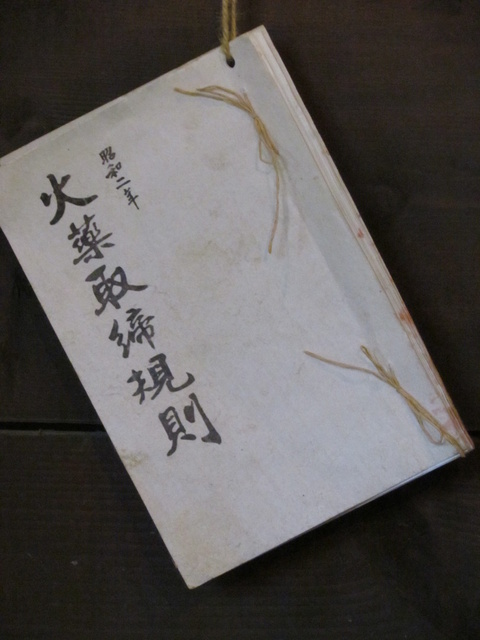 昭和二年
火藥取締規則